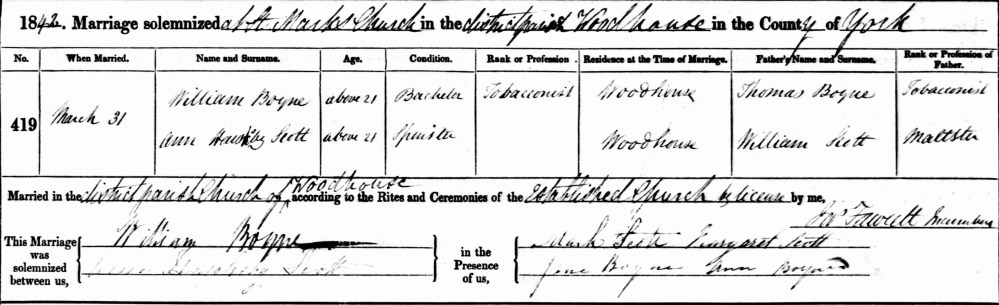 1842. Marriage solemnized at St Marks Church in the district parish Woodhouse in the County of York
No. When Married. Name and Surname. Age. Condition. Rank or Profession. Residence at the Time of Marriage. Father's Name and Surname. Rank or Profession of Father.
419 March 31
William Boyne above 21 Bachelor Tobacconist Woodhouse Thomas Boyne Tobacconist
Ann Scott above 21 Spinster Woodhouse William Scott Maltster
Married in the district parish Church of Woodhouse according to the Rites and Ceremonies of the Established Church by license by me,
Fawcett Incumbent
This Marriage was solemnized between us,
William Boyne
Scott
in the Presence of us,
Mark Scott Margaret Scott
Jane Boyne Ann Boyne